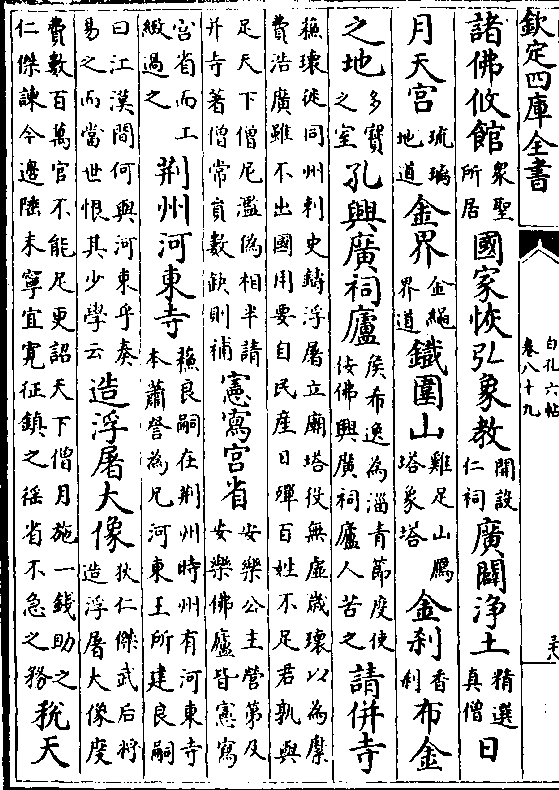 欽定四庫全書
白孔六帖
卷八十九
諸佛攸館 衆聖所居 國家恢弘象教 開設仁祠 廣闢淨土 精選真僧 日
月天宮 琉璃地道 金界 金繩界道 鐵圍山 雞足山鴈塔象塔 金刹 香刹 布金
之地 多寶之室 孔興廣祠廬 侯希逸為淄青節度使佞佛興廣祠廬人苦之 請併寺
蘓瓌徙同州刺史鑄浮屠立廟塔役無虛歲瓌以為糜
費浩廣雖不出國用要自民産日殫百姓不足君孰與
足天下僧尼濫偽相半請并寺著僧常員數缺則補 憲寫宮省 安樂公主營第及安樂佛廬皆憲寫
宮省而工緻過之 荆州河東寺 蘓良嗣在荆州時州有河東寺本蕭詧為兄河東王所建良嗣
曰江漢間何與河東乎奏易之而當世恨其少學云 造浮屠大像 狄仁傑武后将造浮屠大像度
費數百萬官不能足更詔天下僧月施一錢助之
仁傑諫今邊陲未寧宜寛征鎮之徭省不急之務 税天